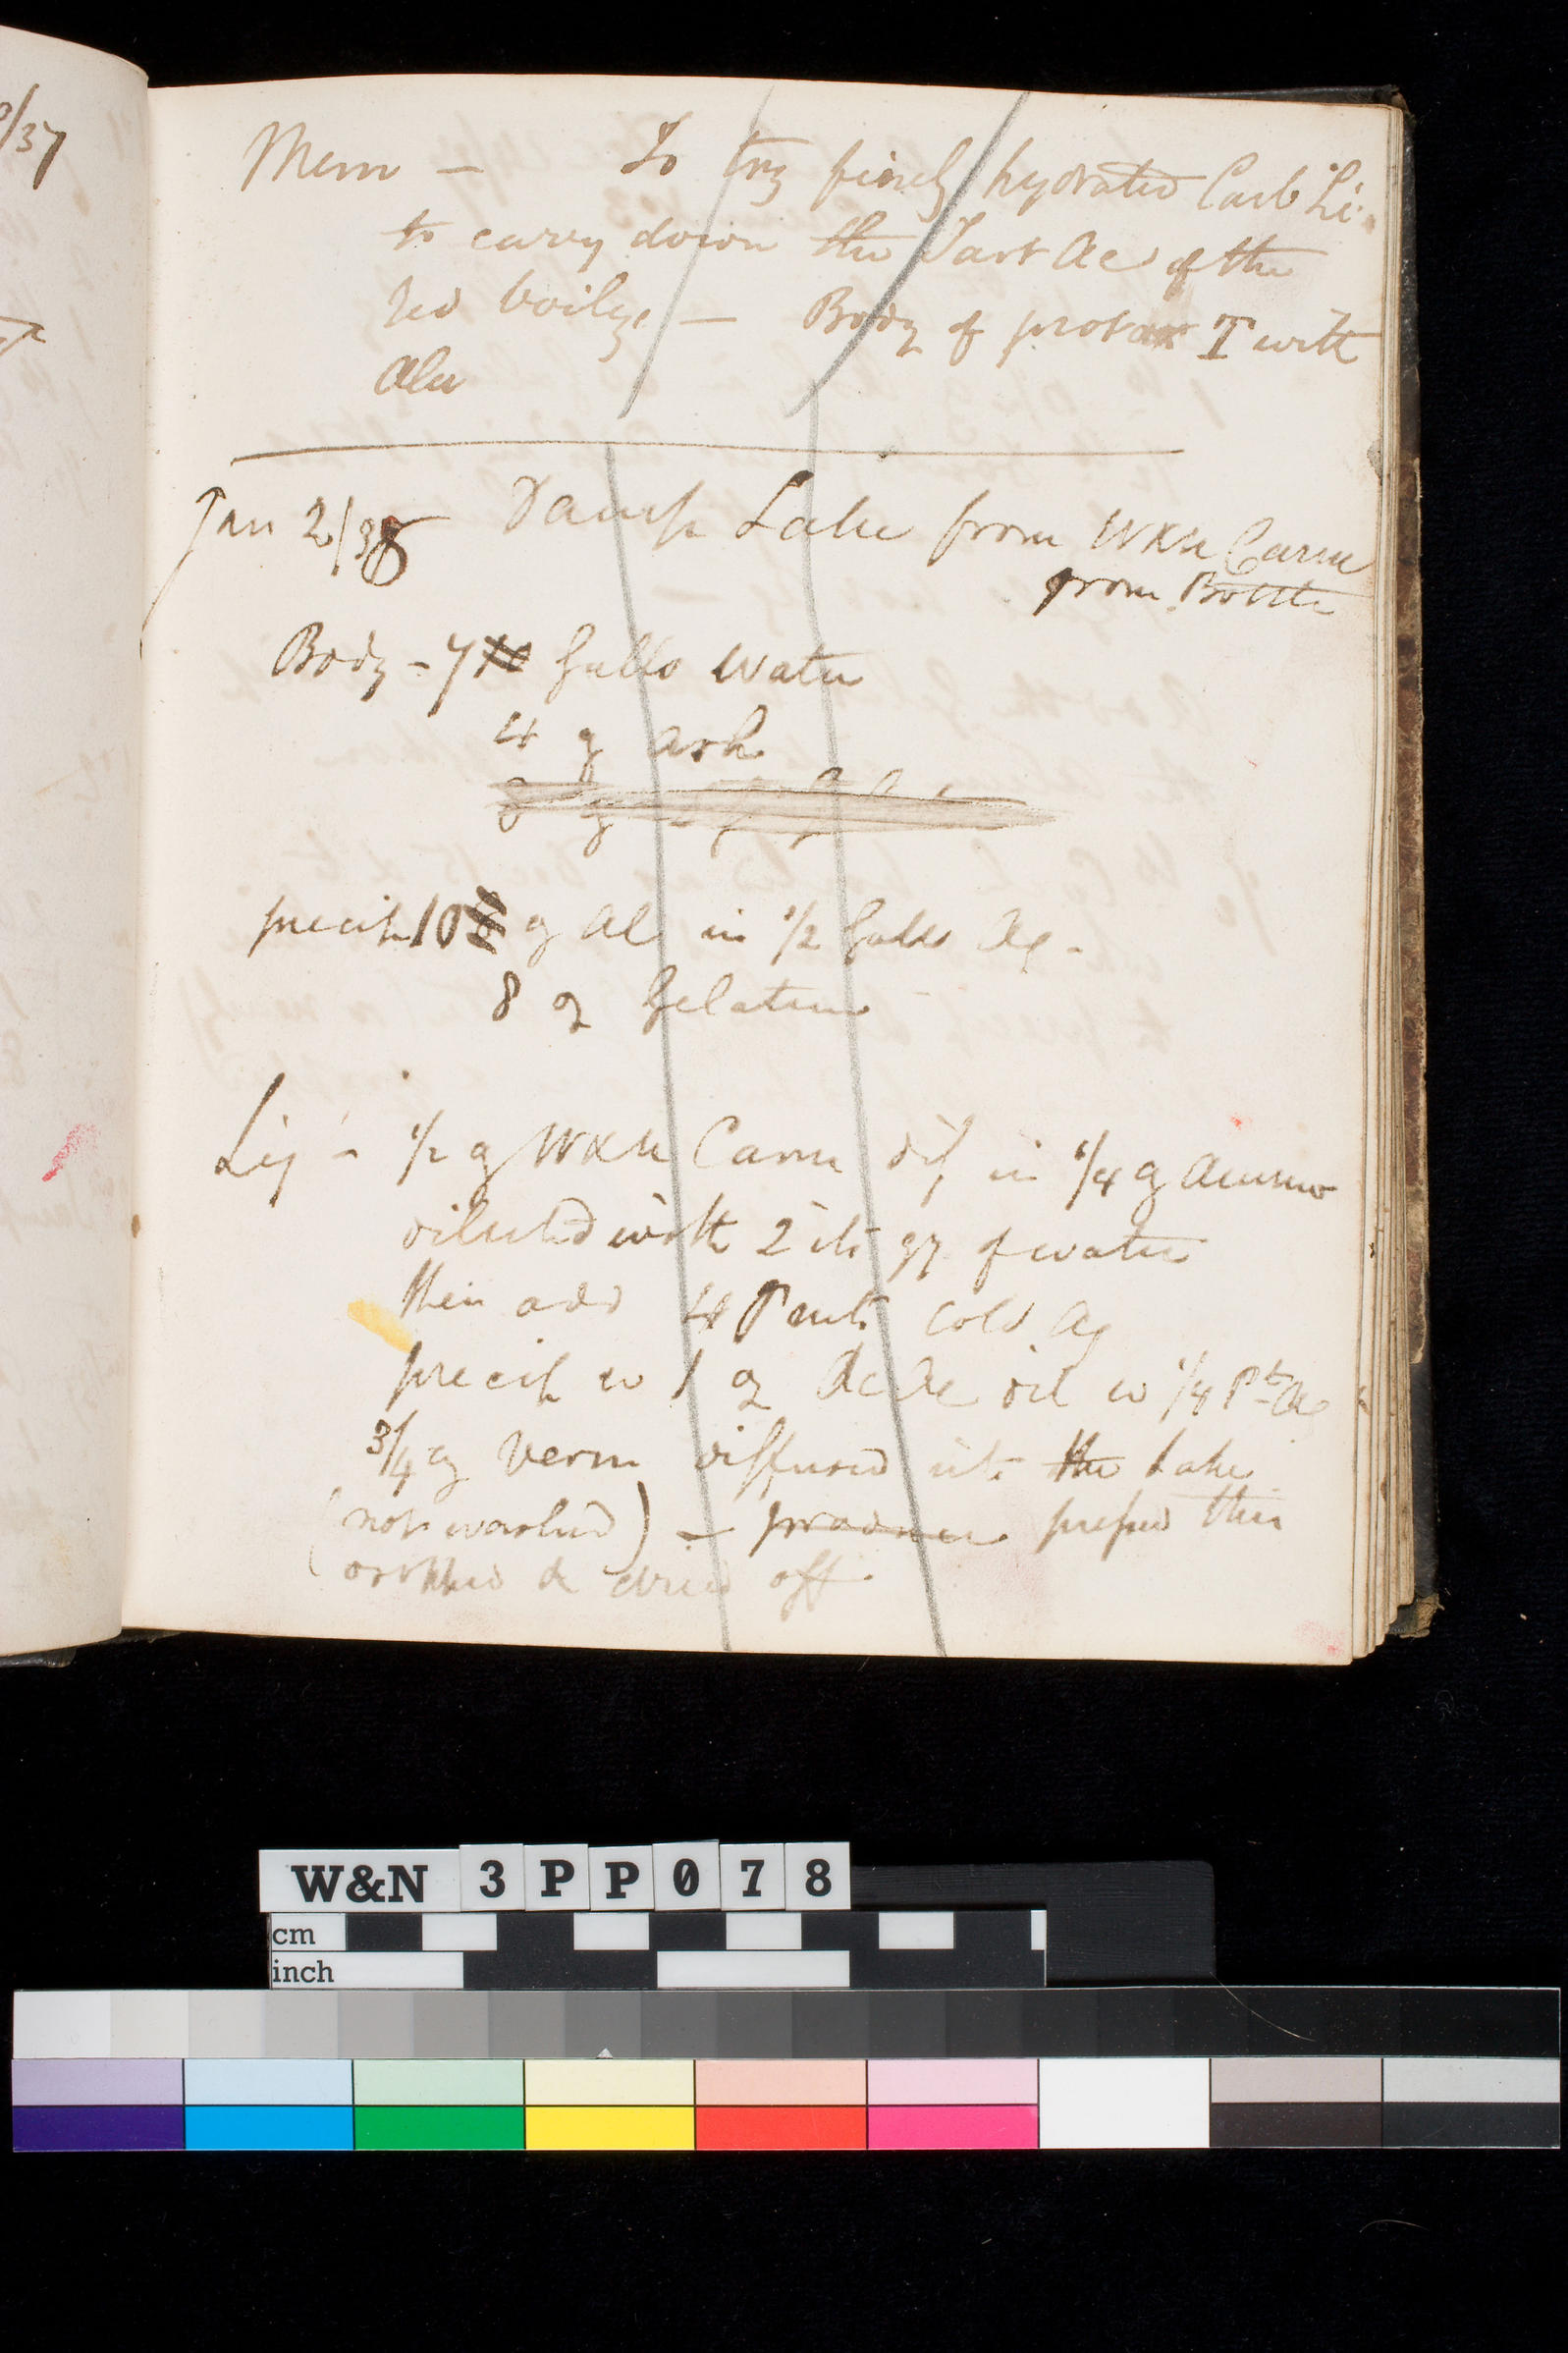 /37
Mem – To try finely hydrated Carb Li.
to carry down the Tart Ac of the
red boilgs – Body of protox T with
Alu
Jan 2/38 Lake from Carm
from Bottle
Body – 7 Galls Water
4 oz ash
precip 10 oz Al in 1/2 Galls Aq –
8 oz Gelatine
Liq – 1/2 oz Carm dif in 1/4 oz Ammo
diluted with 2 its qy of water
then add 4 Pints cold Aq
precip w 1 oz Ac Ac dil w 1/4 Pt Aq
3/4 oz Verm diffused into the Lake
(not washed) – pressed then
& dried off.
W&N 3PP078
cm
inch